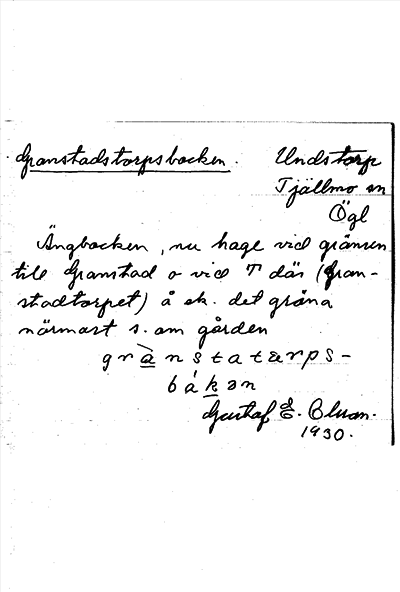 Granstadstorpsbacken. Undstorp
Tjällmo sn
Ögl
Ängbacken, nu hage vid gränsen
till Granstad o vid T där (Gran-
stadtorpet) å ek. det gröna
närmast s. om gården
grànstatàrps-
bákən
Gustaf E.
1930.